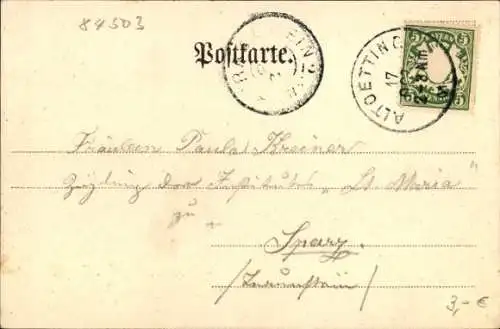 84503
Postkarte.
ALTOETTING
17
5 BAYERN 5
Fräulein Paula Kreiner
Zögling des Instituts „St. Maria"
zu
Sparz
(Traunstein)
3,- €